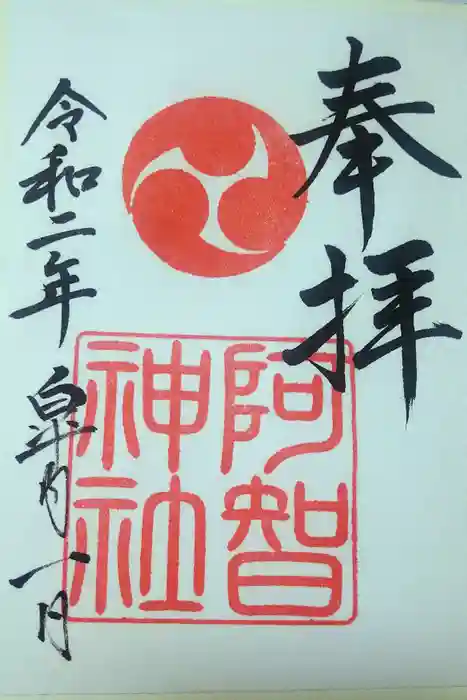 奉拝
阿智
神社
令和二年皐月一日